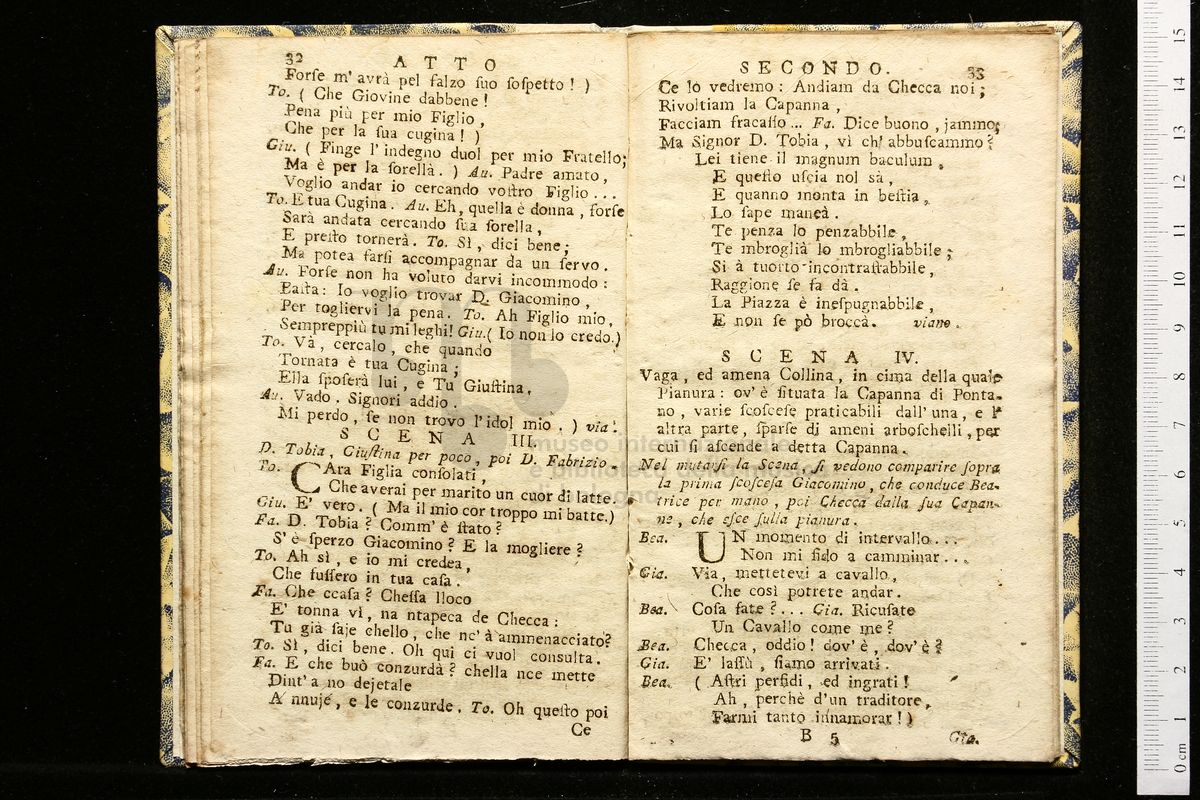 32 ATTO
Forſe m' avrà pel falzo ſuo ſoſpetto! )
To. ( Che Giovine dabbene!
Pena più per mio Figlio,
Che per la ſua cugina! )
Giu. ( Finge l'indegno duol per mio Fratello;
Ma è per la ſorella. ) Au. Padre amato,
Voglio andar io cercando voſtro Figlio...
To. E tua Cugina. Au. Eh, quella è donna, forſe
Sarà andata cercando ſua ſorella,
E preſto tornerà. To. Sì, dici bene;
Ma potea farſi accompagnar da un ſervo.
Au. Forſe non ha voluto darvi incommodo:
Baſta: Io voglio trovar D. Giacomino,
Per togliervi la pena. To. Ah Figlio mio,
Sempreppiù tu mi leghi! Giu. ( Io non lo credo.)
To. Và, cercalo, che quando
Tornata è tua Cugina;
Ella ſpoſerà lui, e Tu Giuſtina,
Au. Vado. Signori addio
Mi perdo, ſe non trovo l'idol mio. ) via.
SCENA III.
D. Tobia, Giuſtina per poco, poi D. Fabrizio.
To. CAra Figlia conſolati,
Che averai per marito un cuor di latte.
Giu. E' vero. ( Ma il mio cor troppo mi batte.)
Fa. D. Tobia? Comm' è ſtato?
S' è ſperzo Giacomino? E la mogliere?
To. Ah sì, e io mi credea,
Che fuſſero in tua caſa.
Fa. Che ccaſa? Cheſſa lloco
E' tonna vì, na ntapeca de Checca:
Tu già ſaje chello, che nc' à ammenacciato?
To. Sì, dici bene. Oh quì ci vuol conſulta.
Fa. E che buò conzurdà? chella nce mette
Dint' a no dejetale
A nnuje, e le conzurde. To. Oh queſto poi
Ce
SECONDO. 33
Ce lo vedremo: Andiam da Checca noi;
Rivoltiam la Capanna,
Facciam fracaſſo... Fa. Dice buono, jammo;
Ma Signor D. Tobia, vì ch' abbuſcammo?
Lei tiene il magnum baculum,
E queſto uſcia nol sà,
E quanno monta in beſtia,
Lo ſape maneà.
Te penza lo penzabbile,
Te mbroglià lo mbrogliabbile;
Si à tuorto incontraſtabbile,
Raggione ſe fa dà.
La Piazza è ineſpugnabbile,
E non ſe pò broccà. viano.
SCENA IV.
Vaga, ed amena Collina, in cima della quale
Pianura: ov' è ſituata la Capanna di Ponta-
no, varie ſcoſceſe praticabili dall' una, e l'
altra parte, ſparſe di ameni arboſchelli, per
cui ſi aſcende a detta Capanna.
Nel mutarſi la Scena, ſi vedono comparire ſopra
la prima ſcoſceſa Giacomino, che conduce Bea-
trice per mano, poi Checca dalla ſua Capan-
na, che eſce ſulla pianura.
Bea. UN momento di intervallo...
Non mi fido a camminar...
Gia. Via, mettetevi a cavallo,
Che così potrete andar.
Bea. Coſa fate?... Gia. Ricuſate
Un Cavallo come me?
Bea. Checca, oddio! dov' è, dov' è?
Gia. E' laſſù, ſiamo arrivati.
Bea. ( Aſtri perfidi, ed ingrati!
Ah, perchè d'un traditore,
Farmi tanto innamorar!)
B 5 Gia.
museo internazionale
e biblioteca della musica
di bologna
0 cm 1 2 3 4 5 6 7 8 9 10 11 12 13 14 15